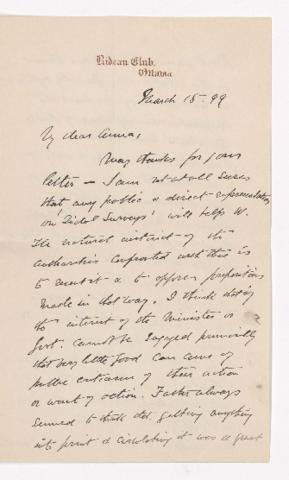 Rideau Club,
Ottawa
March 15. 99
My dear Anna,
Many thanks for your
letter — I am not at all sure
that any public & direct representation
on 'Tidal Surveys' will help it.
The natural instinct of the
authorities confronted with this is
to resent it & to oppose propositions
made in that way. I think that if
the interest of the Minister or
Govt. cannot be engaged privately
that very little good can come of
public criticism of their action
or want of action. Father always
seemed to think that getting anything
into print & circulating it was a great